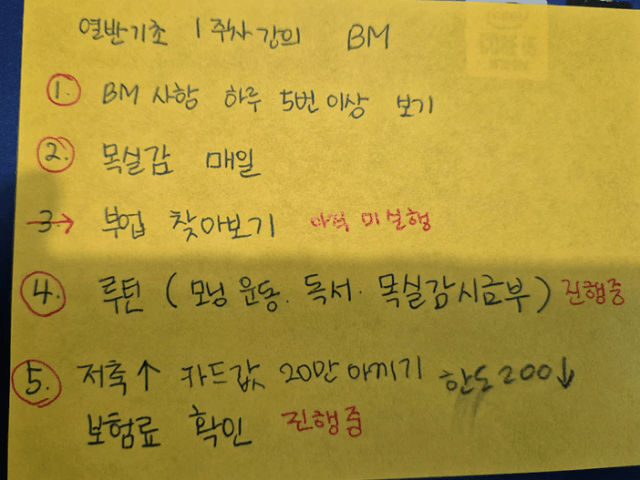 열반기초 1주차 강의 BM
1. BM 사항 하루 5번 이상 보기
2. 목실감 매일
3→ 부업 찾아보기 아직 미실행
4. 루틴 (모닝 운동. 독서. 목실감시금부) 진행중
5. 저축↑ 카드값 20만 아끼기 한도 200↓
보험료 확인 진행중